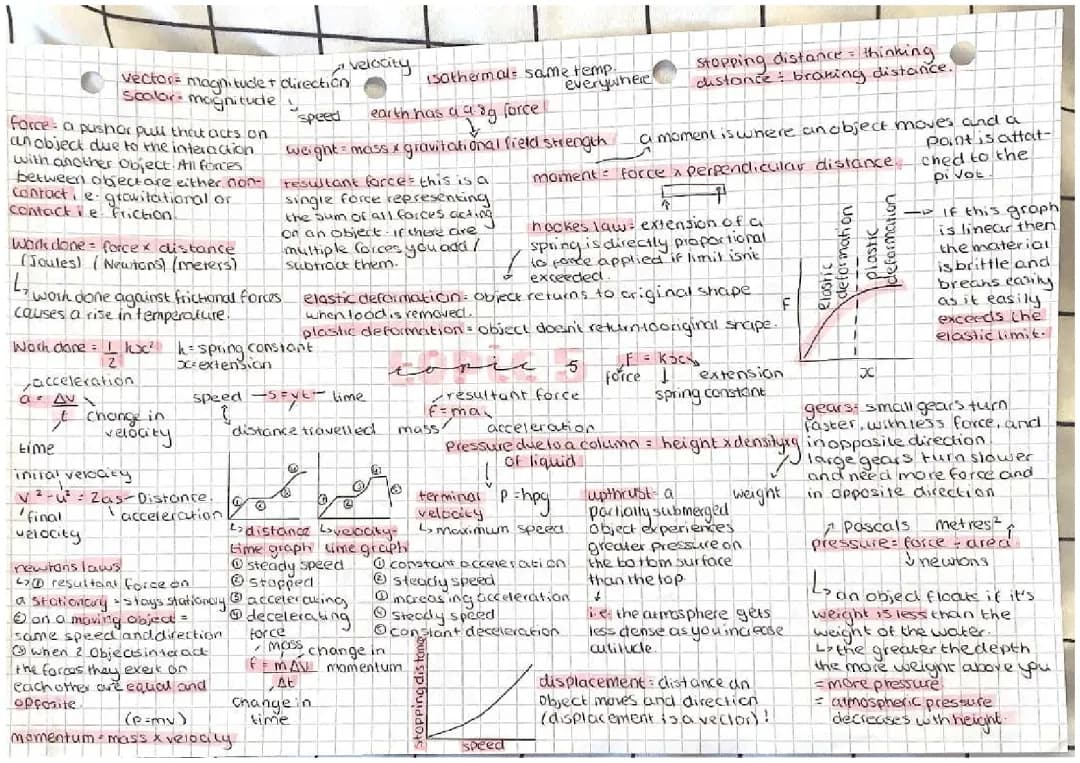 velocity
vector = magnitude + direction
scalar = magnitude
speed
isothermal = same temp.
everywhere
stopping distance = thinking
distance + braking distance.
earth has a 9.8g force
force = a push or pull that acts on
an object due to the interaction
with another object. All forces
between object are either non-
contact i.e. gravitational or
contact i.e. friction.
weight = mass x gravitational field strength
a moment is where an object moves and a
point is attat-
ched to the
pivot.
moment = force x perpendicular distance.
resultant force = this is a
single force representing
the sum of all forces acting
on an object. if there are
multiple forces you add /
subtract them.
hookes law = extension of a
spring is directly proportional
to force applied if limit isnt
exceeded.
work done = force x distance
(Joules) (Newtons) (meters)
work done against frictional forces
causes a rise in temperature.
elastic deformation = object returns to original shape
when load is removed.
plastic deformation = object doesn't return to original shape.
Elastic
deformation
Plastic
deformation
F
x
if this graph
is linear then
the material
is brittle and
breaks easily
as it easily
exceeds the
elastic limit.
Work done = 1/2 kx² k = spring constant
x = extension
topic 5
F = kx
force extension
spring constant
acceleration
a = Δv
t
change in
velocity
time
speed s = vt time
distance travelled
resultant force
f = ma
mass acceleration
gears = small gears turn
faster, with less force, and
in opposite direction
large gears turn slower
and need more force and
in opposite direction
pressure due to a column = height x density x g
of liquid
P = hpg
weight
initial velocity
v² - u² = 2as Distance.
final acceleration
velocity
① ② ③ ④
① ② ③ ④ ⑤
distance
time graph
① steady speed
② stopped
③ accelerating
④ decelerating
velocity-
time graph
① constant acceleration
② steady speed
③ increasing acceleration
④ steady speed
⑤ constant deceleration
terminal
velocity
maximum speed.
upthrust = a
partially submerged
object experiences
greater pressure on
the bottom surface
than the top.
i.e. the atmosphere gets
less dense as you increase
altitude.
Pascals metres²
pressure = force ÷ area
newtons
an object floats if it's
weight is less than the
weight of the water.
the greater the depth
the more weight above you
= more pressure
= atmospheric pressure
decreases with height.
newtons laws
① resultant force on
a stationary = stays stationary
② on a moving object =
same speed and direction
③ when 2 objects interact
the forces they exert on
each other are equal and
opposite.
force
mass change in
f = mΔv momentum
Δt
change in
time
(p = mv)
momentum = mass x velocity
stopping distance
speed
displacement = distance an
object moves and direction
(displacement is a vector)!